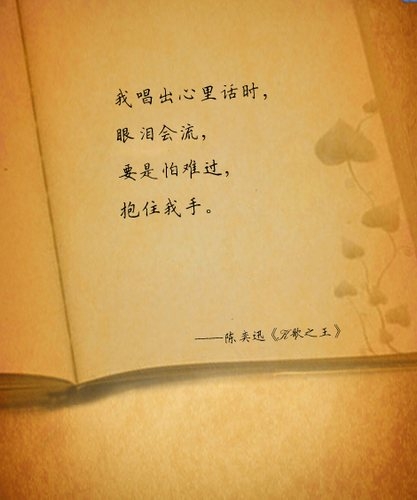 我唱出心里话时，
眼泪会流，
要是怕难过，
抱住我手。
——陈奕迅《K歌之王》